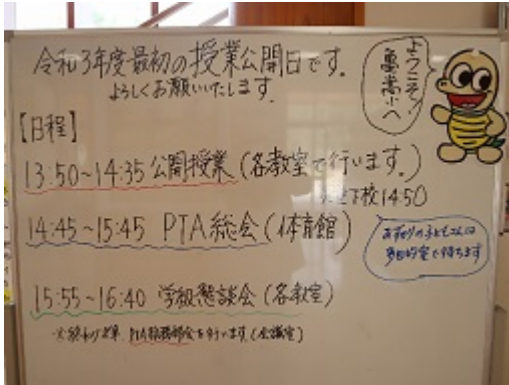 令和3年度最初の授業公開日です。
よろしくお願いいたします。
ようこそ!
亀高小へ
【日程】
13:50~14:35 公開授業(各教室で行います。)
下校14:50
14:45~15:45 PTA総会(体育館)
お預りの子どもさんは
多目的室で待ちます
15:55~16:40 学級懇談会(各教室)
※終わり次第、PTA総務部会を行います。(会議室)